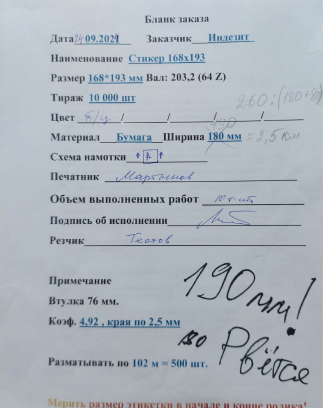 Бланк заказа
Дата 24 09.2021 Заказчик Индезит
Наименование Стикер 168х193
Размер 168*193 мм Вал: 203,2 (64 Z)
Тираж 10 000 шт
260:(180+8)
Цвет б/ц / / / /
Материал Бумага Ширина 180 мм = 2,5 км
Схема намотки
Печатник Мартынов
Объем выполненных работ 10 т. шт
Подпись об исполнении
Резчик Тестов
Примечание
190 мм!
Втулка 76 мм.
Коэф. 4,92 , края по 2,5 мм
Рвётся
Разматывать по 102 м = 500 шт.
Мерить размер этикетки в начале и конце ролика!